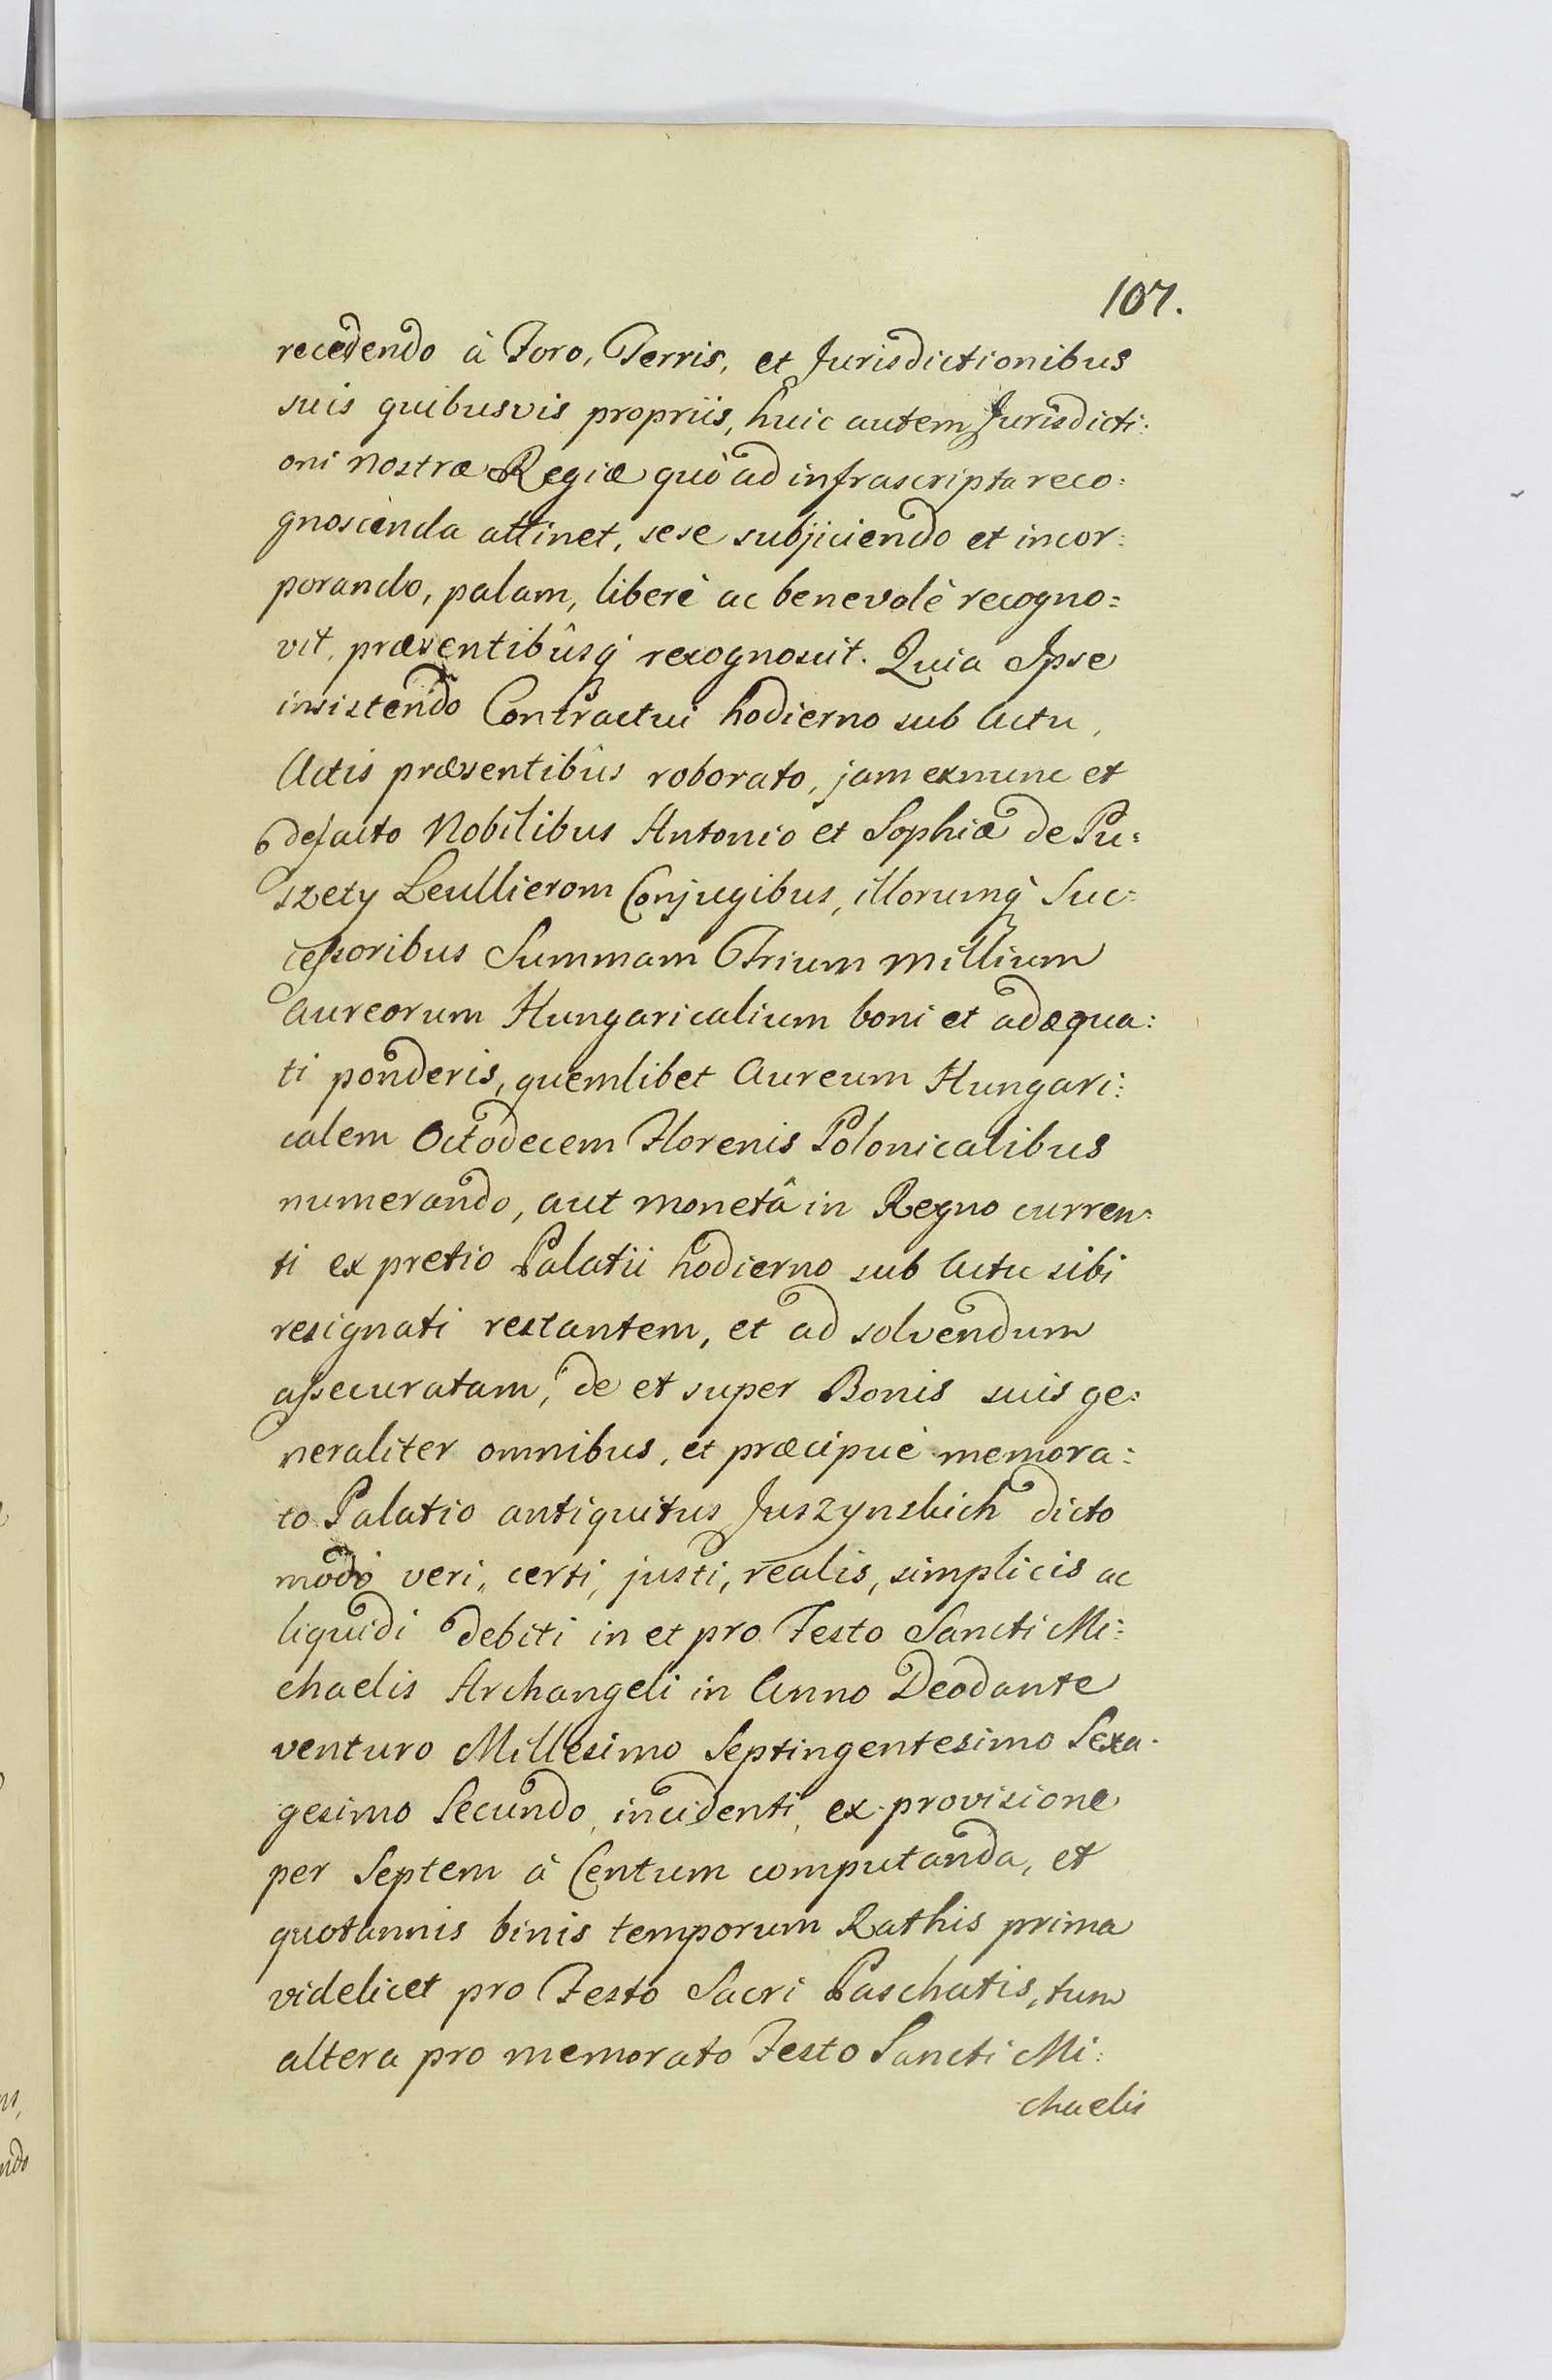 107.
recedendo à Foro, Terris, et Jurisdictionibus
suis quibusvis propriis, huic autem Jurisdicti:
oni nostræ Regiæ quò ad infrascripta reco:
gnoscenda attinet, sese subjiciendo et incor:
porando, palam, liberè ac benevolè recogno:
vit, præsentibûsq́ recognoscit. Quia Ipse
insistendo Contractui hodierno sub Actu,
Actis præsentibûs roborato, jam exnunc et
defacto Nobilibus Antonio et Sophiæ de Pu:
szety Leullierom Conjugibus, illorumq́ Suc:
cessoribus Summam Trium millium
Aureorum Hungaricalium boni et adæqua:
ti ponderis, quemlibet Aureum Hungari:
calem Octodecem Florenis Polonicalibus
numerando, aut monetâ in Regno curren:
ti ex pretio Palatii hodierno sub Actu sibi
resignati restantem, et ad solvendum
assecuratam, de et super Bonis suis ge:
neraliter omnibus, et præcipuè memora:
to Palatio antiquitus Juszynskich dicto
modò veri, certi, justi, realis, simplicis ac
liquidi debiti in et pro Festo Sancti Mi:
chaelis Archangeli in Anno Deodante
venturo Millesimo Septingentesimo Sexa:
gesimo Secundo, incidenti, ex provisione
per Septem à Centum computanda, et
quotannis binis temporum Rathis prima
videlicet pro Festo Sacri Paschatis, tum
altera pro memorato Festo Sancti Mi:
chaelis